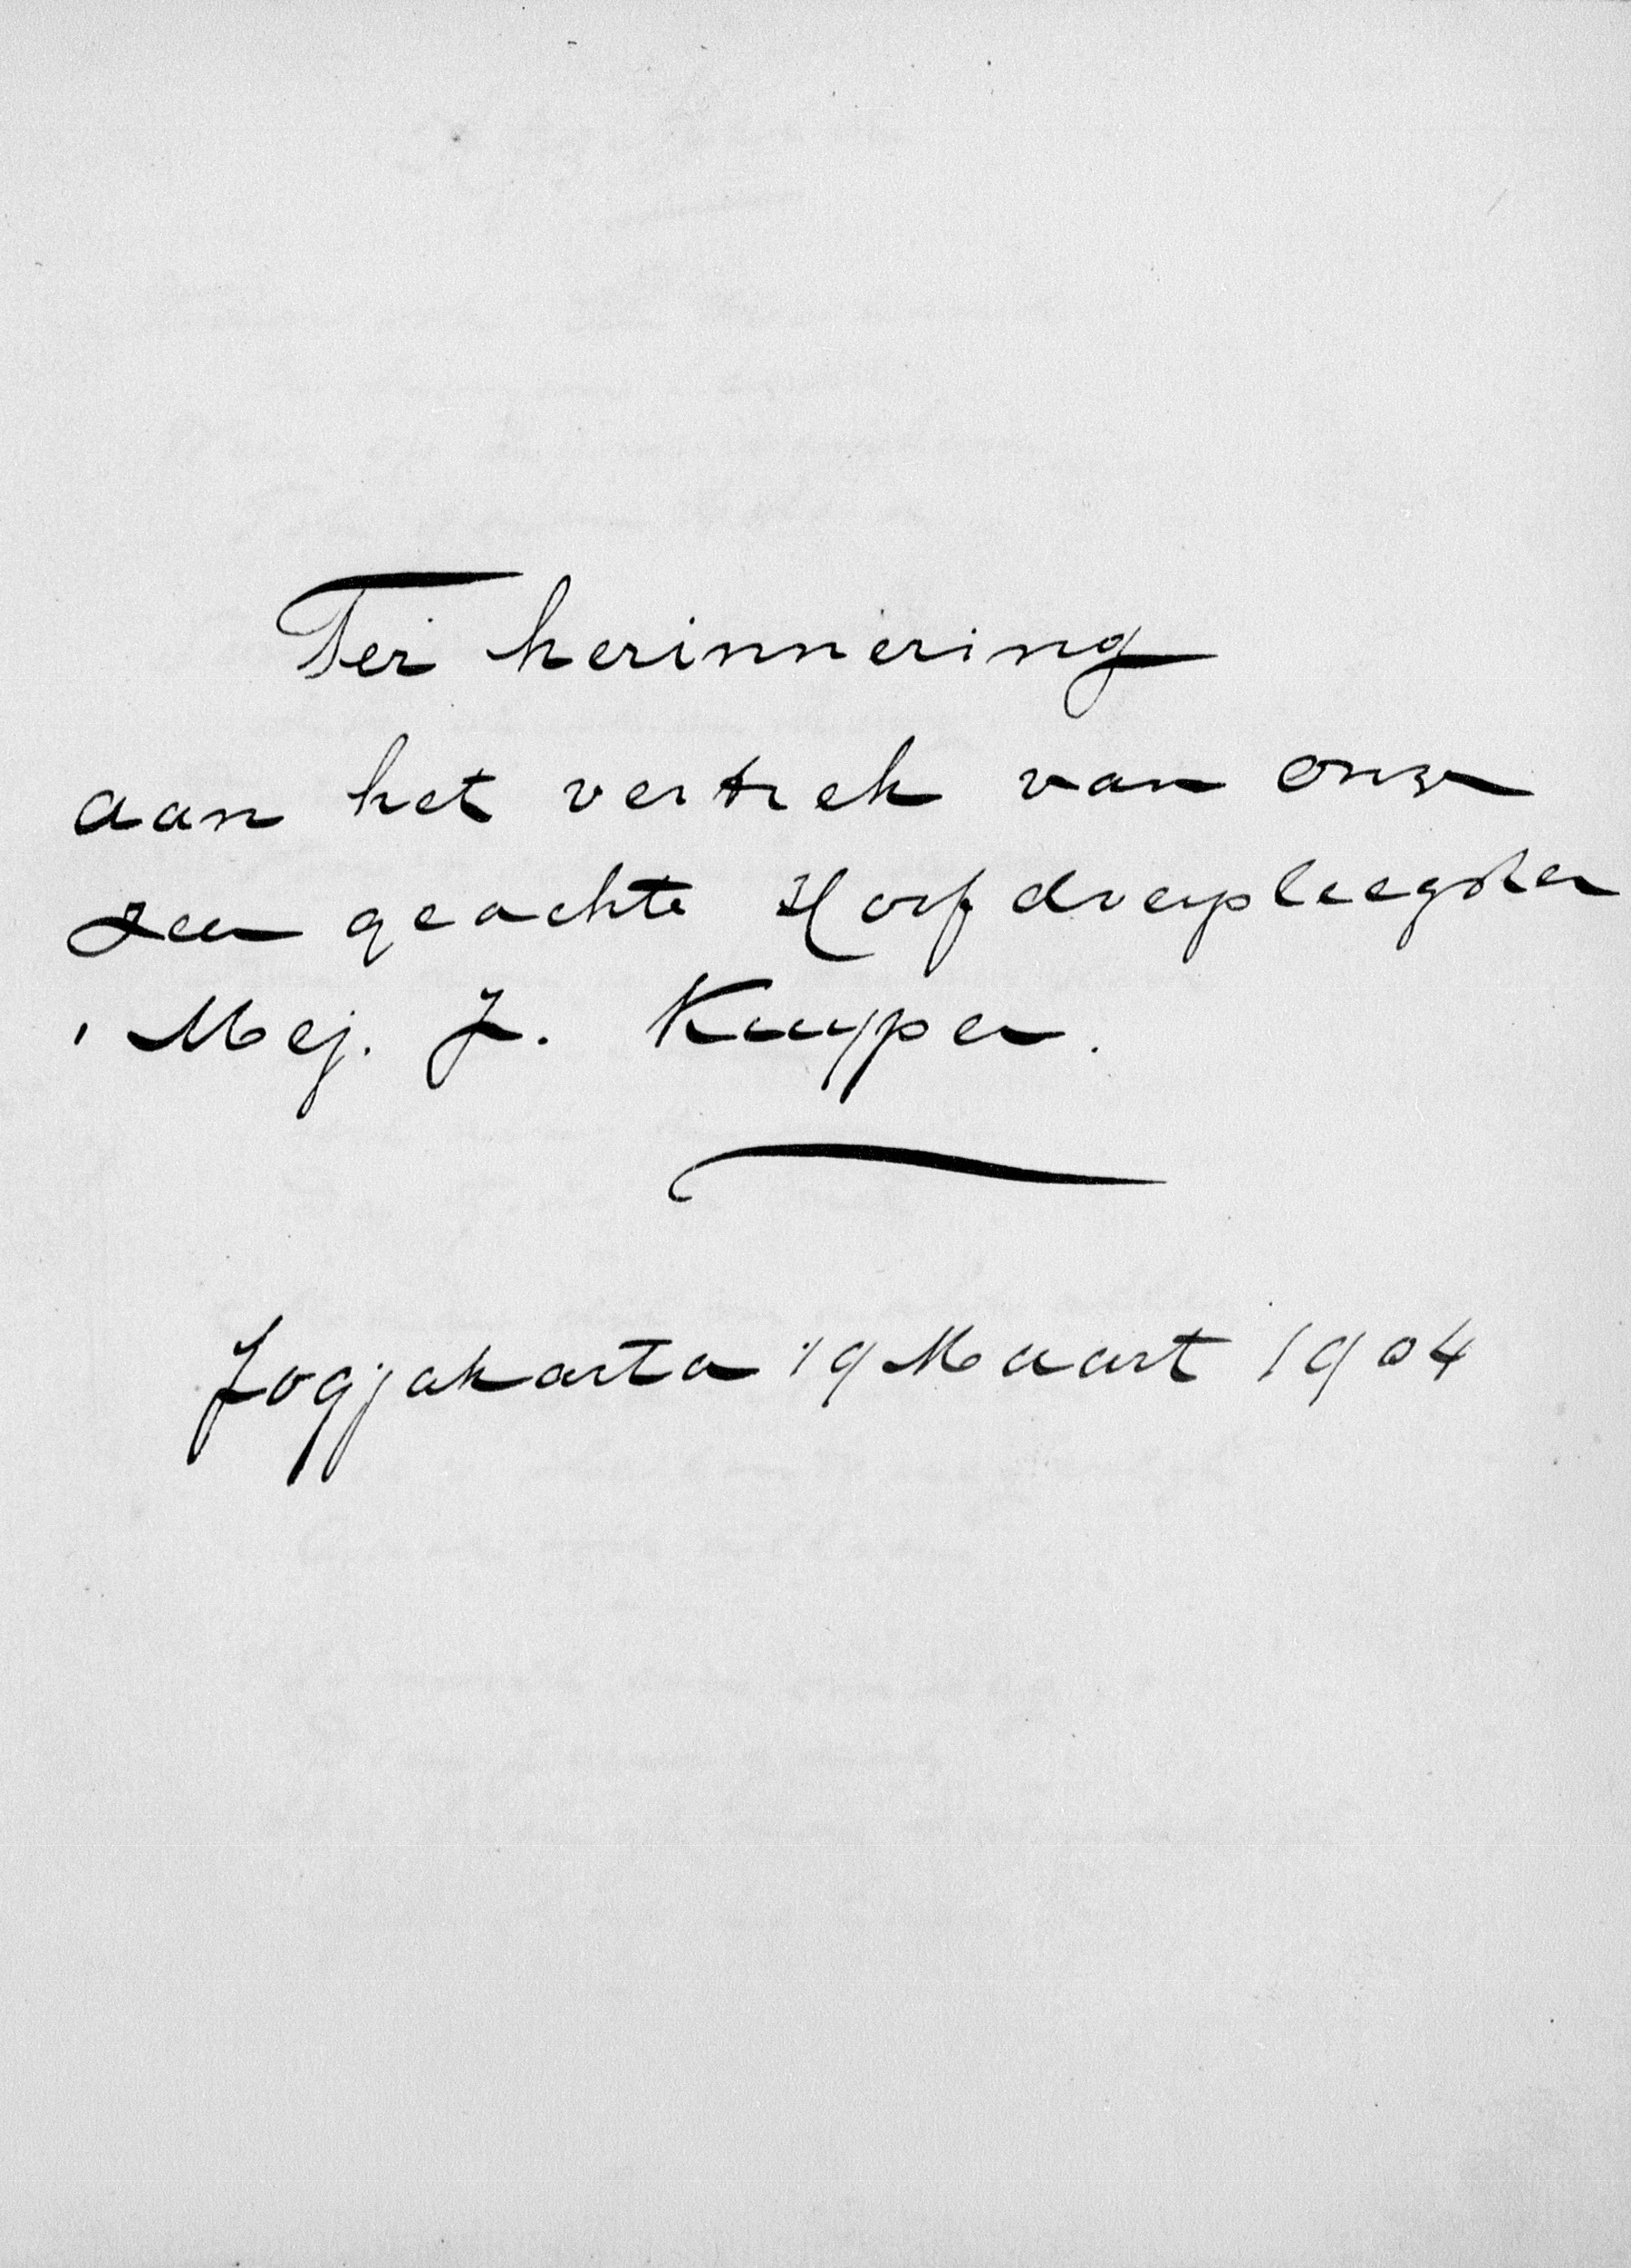 Ter herinnering
aan het vertrek van onze
zeer geachte Hoofdverpleegster
Mej. J. Kuyper.
Jogjakarta 19 Maart 1904